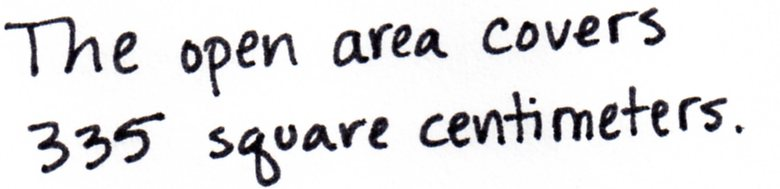 The open area covers
335 square centimeters.